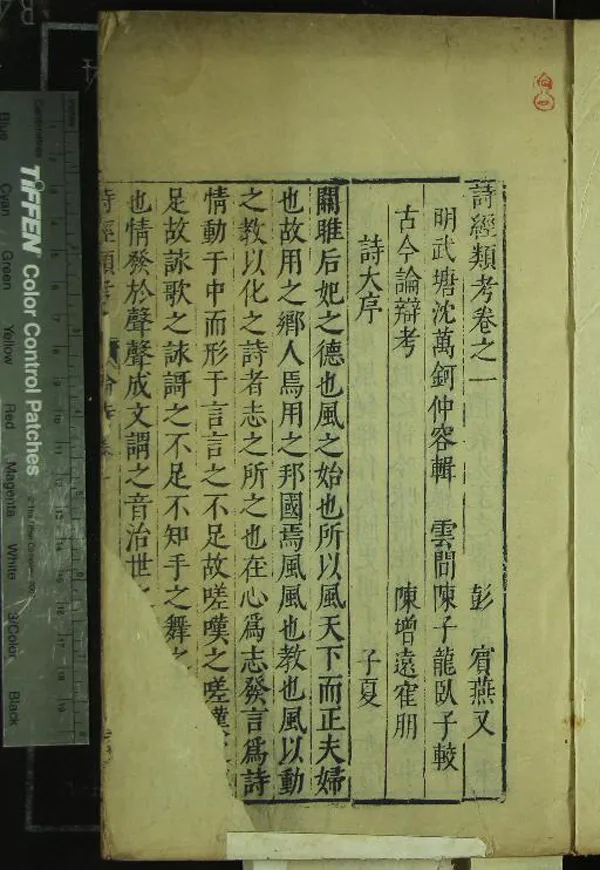 詩經類考卷之一 彭 賓燕又
明武塘沈萬鈳仲容輯 雲間陳子龍臥子較
古今論辯考 陳增遠霍朋
詩大序 子夏
關雎后妃之德也風之始也所以風天下而正夫婦
也故用之鄉人焉用之邦國焉風風也教也風以動
之教以化之詩者志之所之也在心爲志發言爲詩
情動于中而形于言言之不足故嗟嘆之嗟嘆
足故詠歌之詠謌之不足不知手之舞之
也情發於聲聲成文謂之音治世之
詩經類考
TIFFEN Color Control Patches
Blue Cyan Green Yellow Red Magenta White 3/Color Black
Centimetres